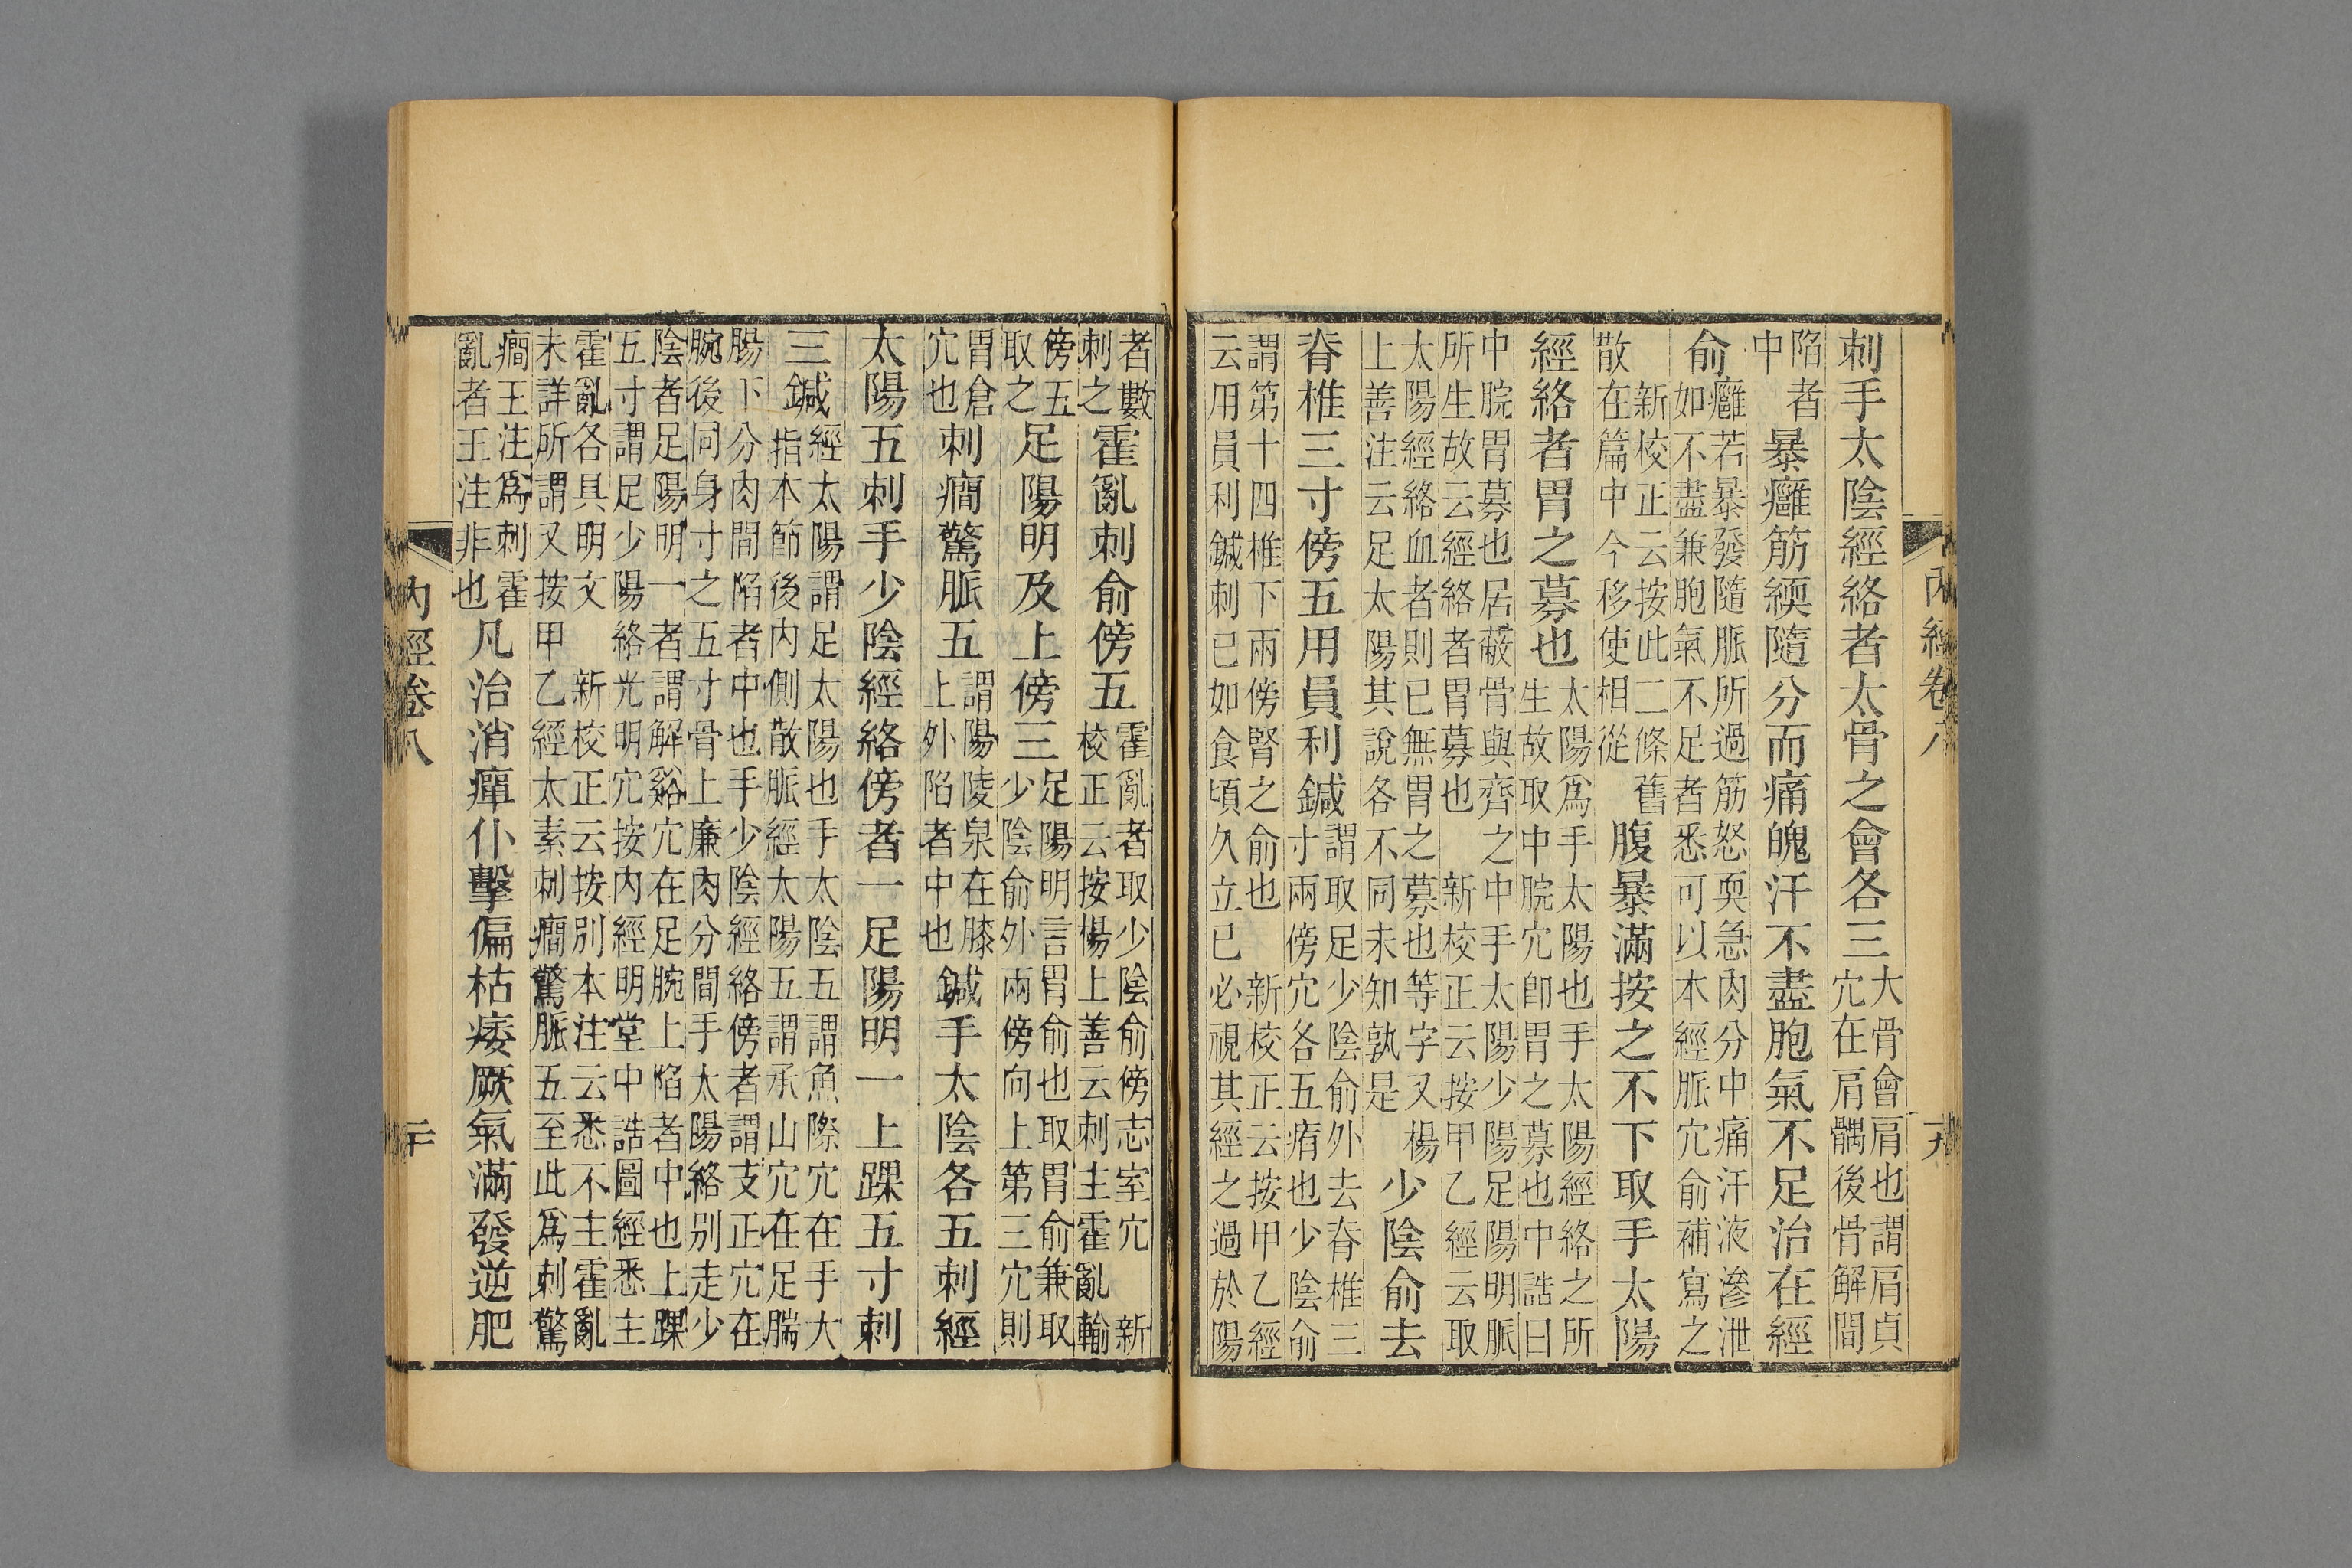 内經卷八
十九
刺手太陰經絡者太骨之會各三
大骨會肩也謂肩貞
穴在肩髃後骨解間
陷者
中
暴癰筋緛隨分而痛魄汗不盡胞氣不足治在經
俞
癰若暴發隨脈所過筋怒耎急肉分中痛汗液滲泄
如不盡兼胞氣不足者悉可以本經脈穴俞補寫之
新校正云按此二條舊
散在篇中今移使相從
腹暴滿按之不下取手太陽
經絡者胃之募也
太陽爲手太陽也手太陽經絡之所
生故取中脘穴卽胃之募也中誥曰
中脘胃募也居蔽骨與齊之中手太陽少陽足陽明脈
所生故云經絡者胃募也　新校正云按甲乙經云取
太陽經絡血者則已無胃之募也等字又楊
上善注云足太陽其說各不同未知孰是
少陰俞去
脊椎三寸傍五用員利鍼
謂取足少陰俞外去脊椎三
寸兩傍穴各五痏也少陰俞
謂第十四椎下兩傍腎之俞也　新校正云按甲乙經
云用員利鍼刺已如食頃久立已必視其經之過於陽
者數
刺之
霍亂刺俞傍五
霍亂者取少陰俞傍志室穴　新
校正云按楊上善云刺主霍亂輸
傍五
取之
足陽明及上傍三
足陽明言胃俞也取胃俞兼取
少陰俞外兩傍向上第三穴則
胃倉
穴也
刺癇驚脈五
謂陽陵泉在膝
上外陷者中也
鍼手太陰各五刺經
太陽五刺手少陰經絡傍者一足陽明一上踝五寸刺
三鍼
經太陽謂足太陽也手太陰五謂魚際穴在手大
指本節後内側散脈經太陽五謂承山穴在足腨
腸下分肉間陷者中也手少陰經絡傍者謂支正穴在
腕後同身寸之五寸骨上廉肉分間手太陽絡別走少
陰者足陽明一者謂解谿穴在足腕上陷者中也上踝
五寸謂足少陽絡光明穴按内經明堂中誥圖經悉主
霍亂各具明文　新校正云按別本注云悉不主霍亂
未詳所謂又按甲乙經太素刺癇驚脈五至此爲刺驚
癇王注爲刺霍
亂者王注非也
凡治消癉仆擊偏枯痿厥氣滿發逆肥
内經卷八
二十